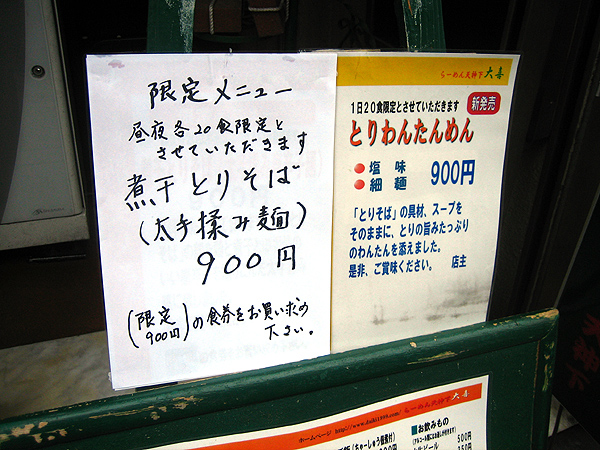 限定メニュー
昼夜各20食限定と
させていただきます
煮干とりそば
(太手揉み麺)
900円
(限定900円)の食券をお買い求め
下さい。
らーめん天神下 大喜
1日20食限定とさせていただきます
新発売
とりわんたんめん
塩味
細麺
900円
「とりそば」の具材、スープを
そのままに、とりの旨みたっぷり
のわんたんを添えました。
是非、ご賞味ください。 店主
ホームページ http://www.daiki1999.com/ らーめん天神下 大喜
■お飲みもの
500円